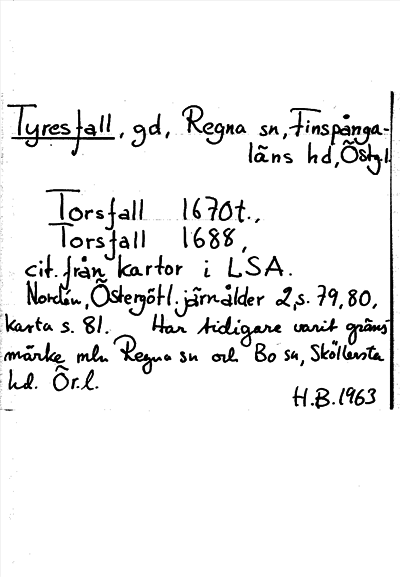 Tyresfall, gd, Regna sn, Finspånga-
läns hd, Östg.l.
Torsfall 1670t.,
Torsfall 1688,
cit. från kartor i LSA.
Nordén, Östergötl. järnålder 2, s. 79, 80,
karta s. 81. Har tidigare varit gräns
märke mln Regna sn och Bo sn, Sköllersta
hd. Ör.l.
H.B. 1963